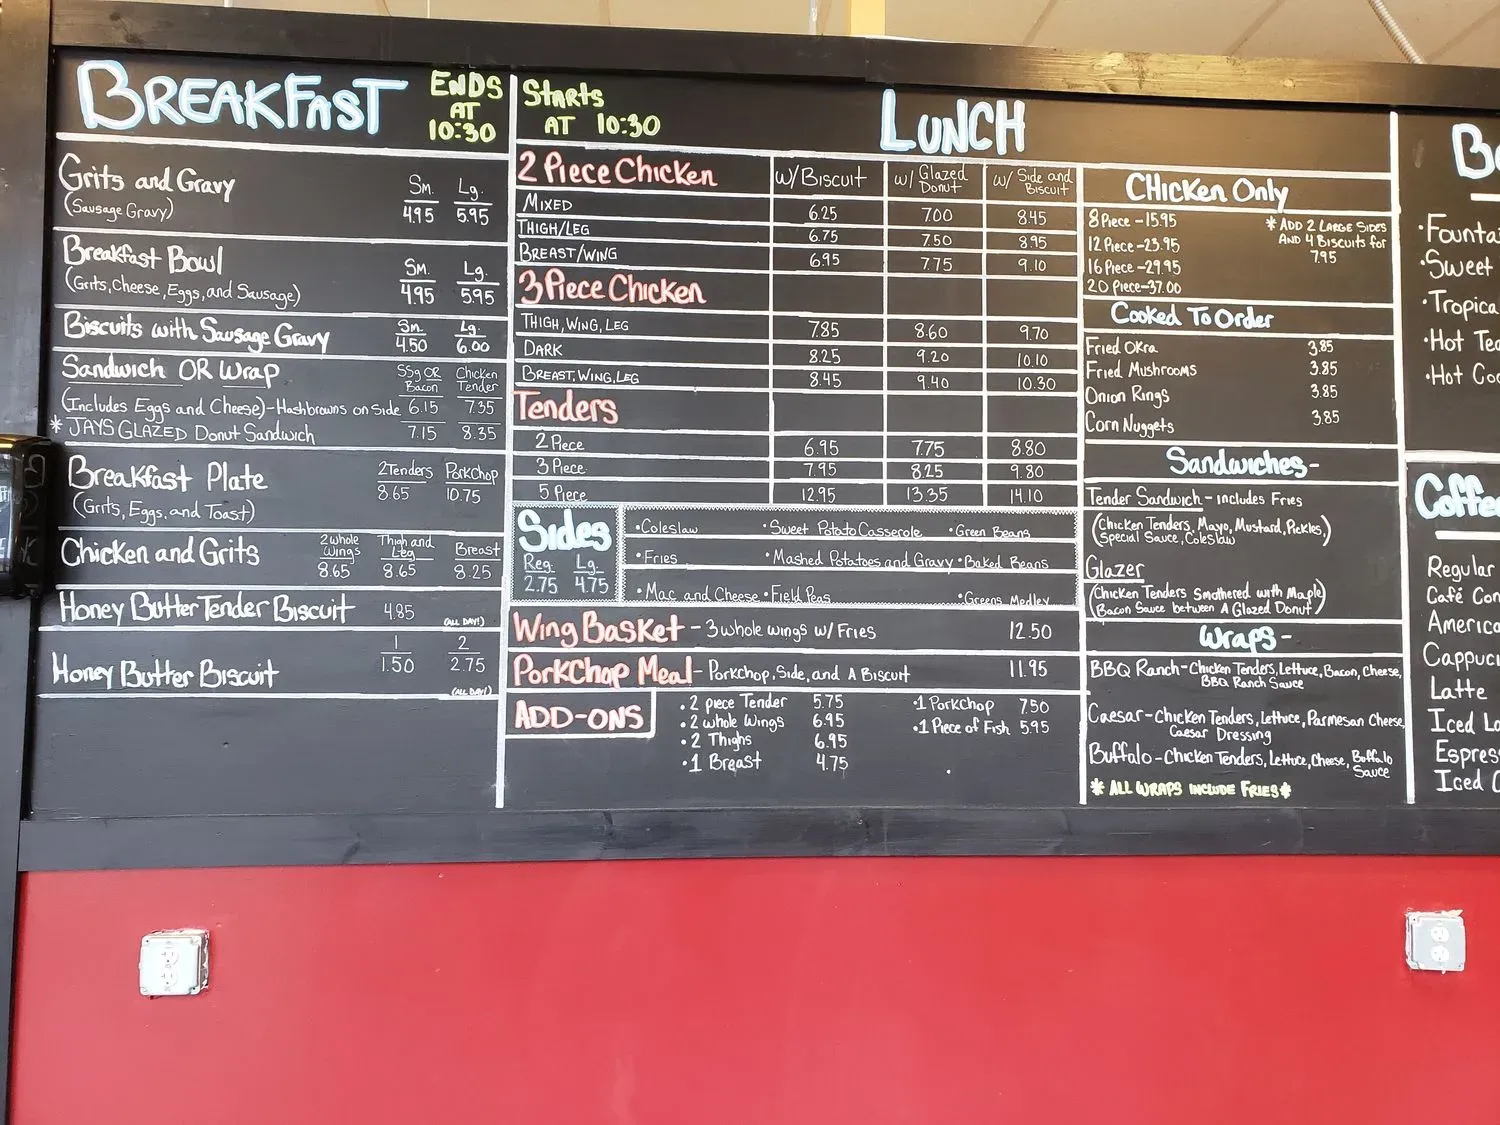 BREAKFAST
ENDS
AT
10:30
Grits and Gravy
(Sausage Gravy)
Sm. Lg.
4.95 5.95
Breakfast Bowl
(Grits, Cheese, Eggs, and Sausage)
Sm. Lg.
4.95 5.95
Biscuits with Sausage Gravy
Sm. Lg.
4.50 6.00
Sandwich OR Wrap
SSg OR Bacon
Chicken Tender
(Includes Eggs and Cheese)-Hashbrowns on Side 6.15 7.35
* JAYS GLAZED Donut Sandwich 7.15 8.35
Breakfast Plate
(Grits, Eggs, and Toast)
2Tenders PorkChop
8.65 10.75
Chicken and Grits
2 whole Wings
Thigh and Leg
Breast
8.65 8.65 8.25
Honey Butter Tender Biscuit 4.85 (ALL DAY!)
Honey Butter Biscuit
1 2
1.50 2.75
(ALL DAY!)
Starts
AT 10:30
LUNCH
2 Piece Chicken w/Biscuit w/ Glazed Donut w/ Side and Biscuit
MIXED 6.25 7.00 8.45
THIGH/LEG 6.75 7.50 8.95
BREAST/WING 6.95 7.75 9.10
3 Piece Chicken
THIGH, WING, LEG 7.85 8.60 9.70
DARK 8.25 9.20 10.10
BREAST, WING, LEG 8.45 9.40 10.30
Tenders
2 Piece 6.95 7.75 8.80
3 Piece 7.95 8.25 9.80
5 Piece 12.95 13.35 14.10
Sides
Reg. Lg.
2.75 4.75
•Coleslaw •Sweet Potato Casserole •Green Beans
•Fries •Mashed Potatoes and Gravy •Baked Beans
•Mac and Cheese •Field Peas •Greens Medley
Wing Basket - 3 whole wings w/ Fries 12.50
PorkChop Meal - Porkchop, Side, and A Biscuit 11.95
ADD-ONS
•2 piece Tender 5.75 •1 Porkchop 7.50
•2 whole Wings 6.95 •1 Piece of Fish 5.95
•2 Thighs 6.95
•1 Breast 4.75
CHicken Only
8 Piece -15.95
12 Piece -23.95
16 Piece -29.95
20 Piece-37.00
* ADD 2 LARGE SIDES
AND 4 Biscuits for
7.95
Cooked To Order
Fried Okra 3.85
Fried Mushrooms 3.85
Onion Rings 3.85
Corn Nuggets 3.85
Sandwiches-
Tender Sandwich - includes Fries
(Chicken Tenders, Mayo, Mustard, Pickles,
Special Sauce, Coleslaw)
Glazer
(Chicken Tenders Smothered with Maple
Bacon Sauce between A Glazed Donut)
Wraps-
BBQ Ranch-Chicken Tenders, Lettuce, Bacon, Cheese,
BBQ Ranch Sauce
Caesar-Chicken Tenders, Lettuce, Parmesan Cheese,
Caesar Dressing
Buffalo-Chicken Tenders, Lettuce, Cheese, Buffalo
Sauce
* ALL WRAPS INCLUDE FRIES *
•Sweet
•Hot
Coffee
Regular
Café
Latte
Iced
Iced